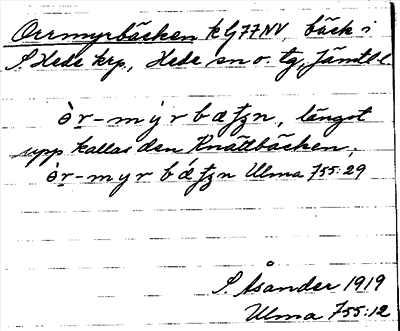 Orrmyrbäcken k G77NV, bäck i
S. Hede krp, Hede sn o. tg, Jämtl. l
òr-mýrbæʈʂn, längst
upp kallas den Knättbäcken;
òr-myrbǽʈʂn Ulma 755:29
S. Åsander 1919
Ulma 755:12